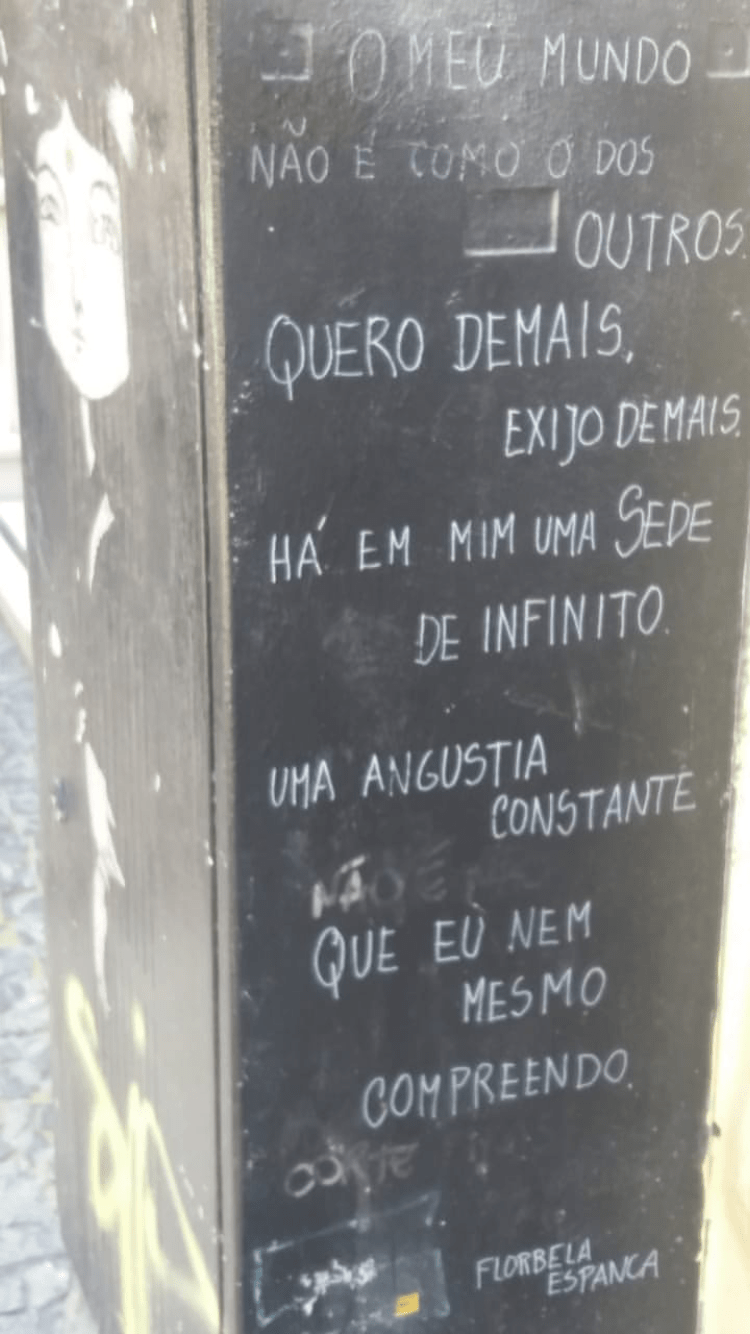 O MEU MUNDO
NÃO É COMO O DOS
OUTROS.
QUERO DEMAIS,
EXIJO DEMAIS.
HÁ EM MIM UMA SEDE
DE INFINITO.
UMA ANGUSTIA
CONSTANTE
NÃO É
QUE EU NEM
MESMO
COMPREENDO.
FLORBELA
ESPANCA